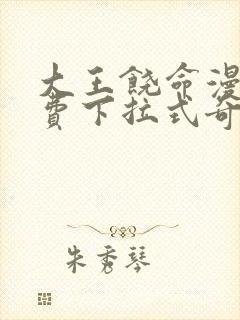 大王饶命漫
费下拉式奇
朱秀琴